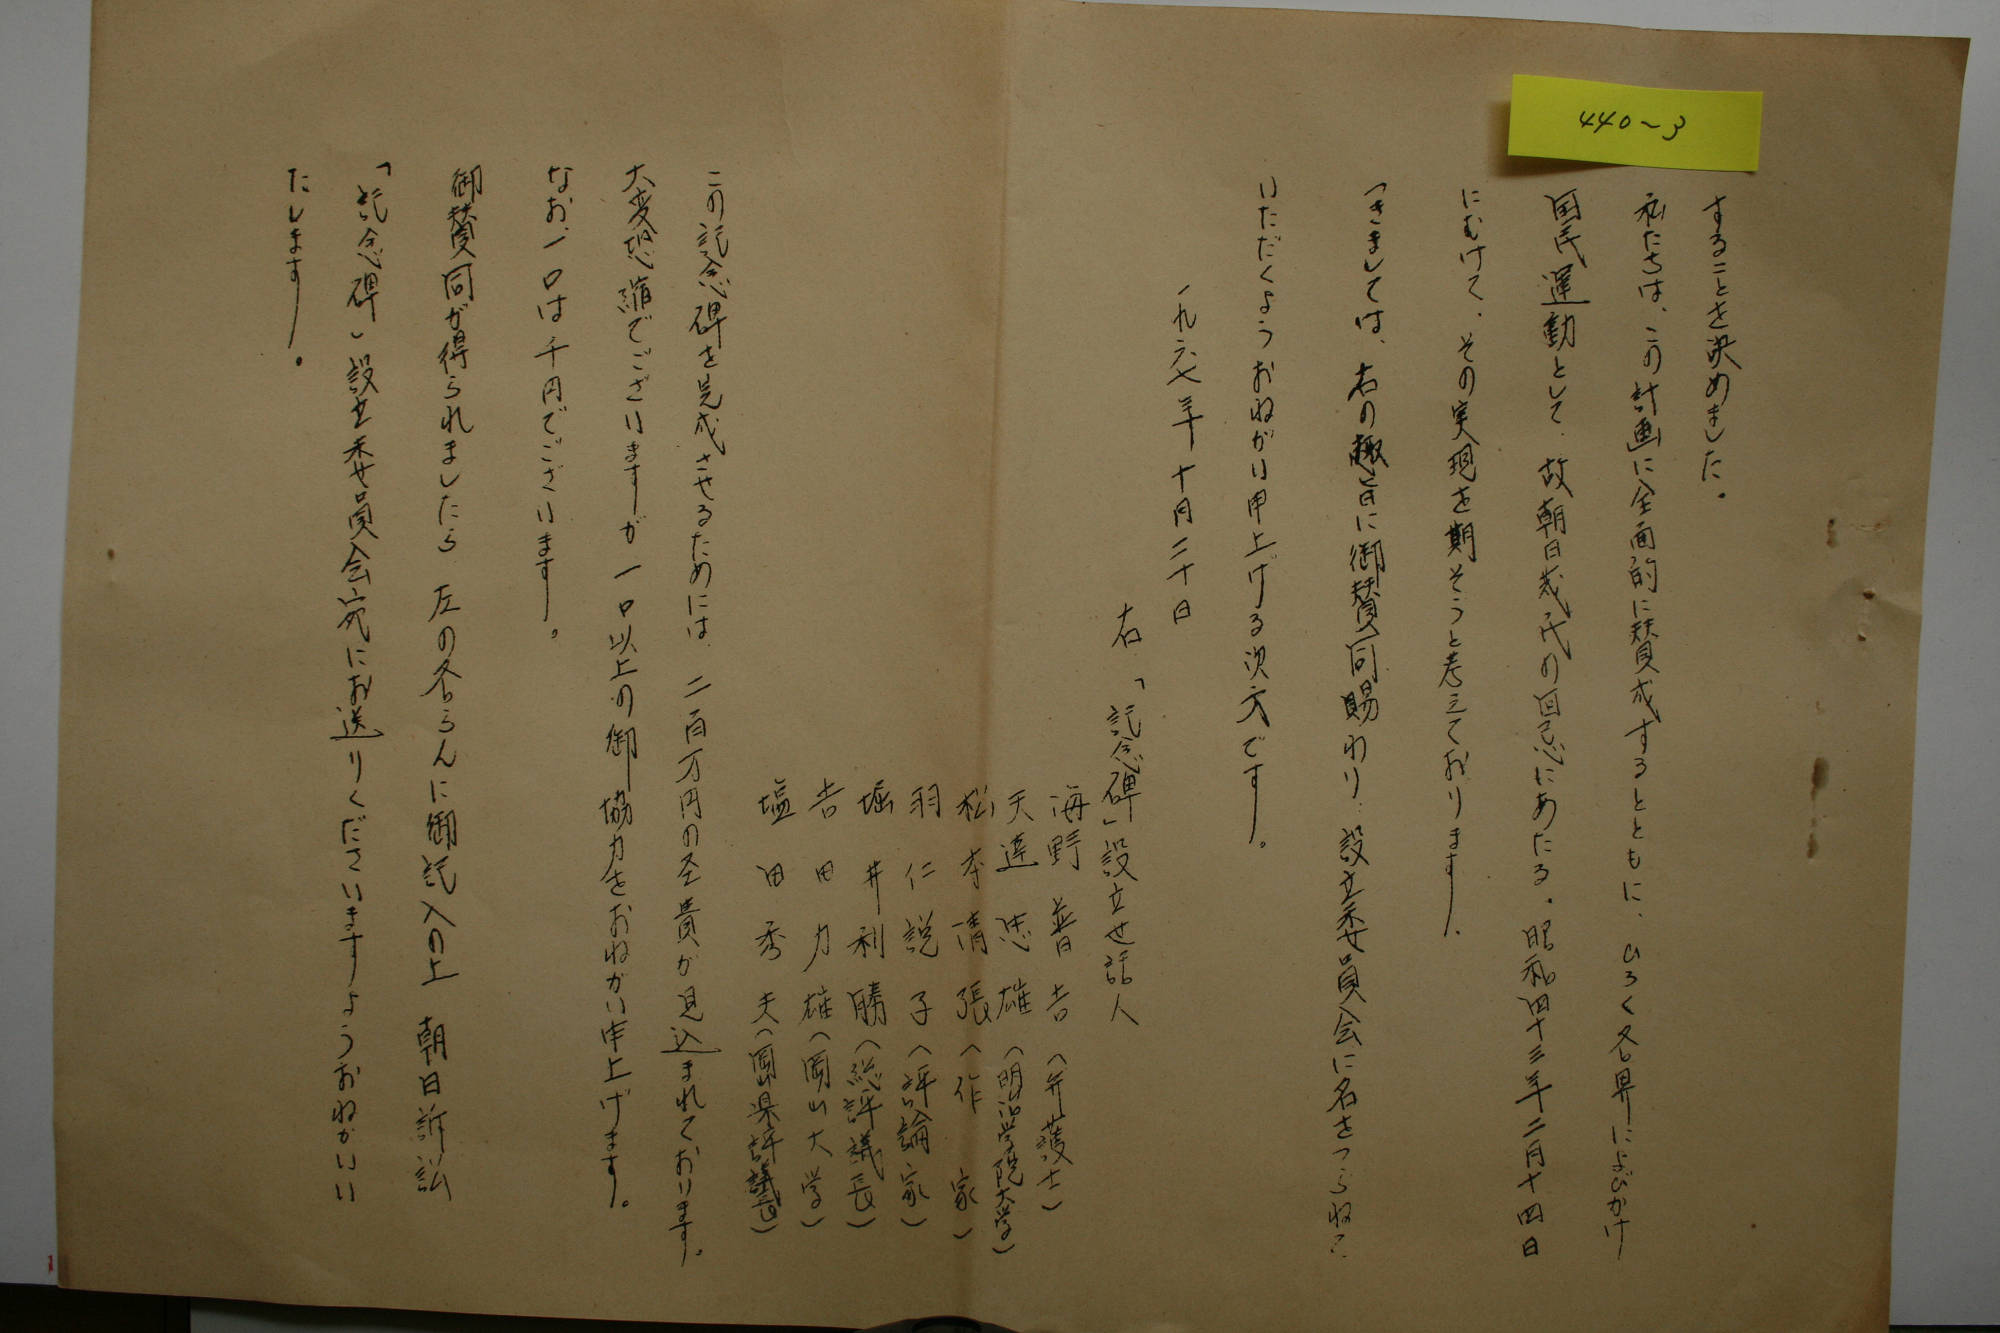 440~3
することを決めました。
私たちは、この計画に全面的に賛成するとともに、ひろく各界によびかけ
国民運動として、故朝日茂氏の回忌にあたる。昭和四十三年二月十四日
にむけて、その実現を期そうと考えております。
つきましては、右の趣旨に御賛同賜わり、設立委員会に名をつらねて
いただくようおねがい申上げる次第です。
一九六七年十月二十日
右「記念碑」設立せ話人
海野普吉(弁護士)
天達忠雄(明治学院大学)
松本清張(作家)
羽仁説子(評論家)
堀井利勝(総評議長)
吉田力雄(岡山大学)
塩田秀夫(岡県評議長)
この記念碑を完成させるためには、二百万円の全費が見込まれております。
大変恐縮でございますが一口以上の御協力をおねがい申上げます。
なお、一口は千円でございます。
御賛同が得られましたら左の各らんに御記入の上朝日訴訟
「記念碑」設立委員会宛にお送りくださいますようおねがいい
たします。